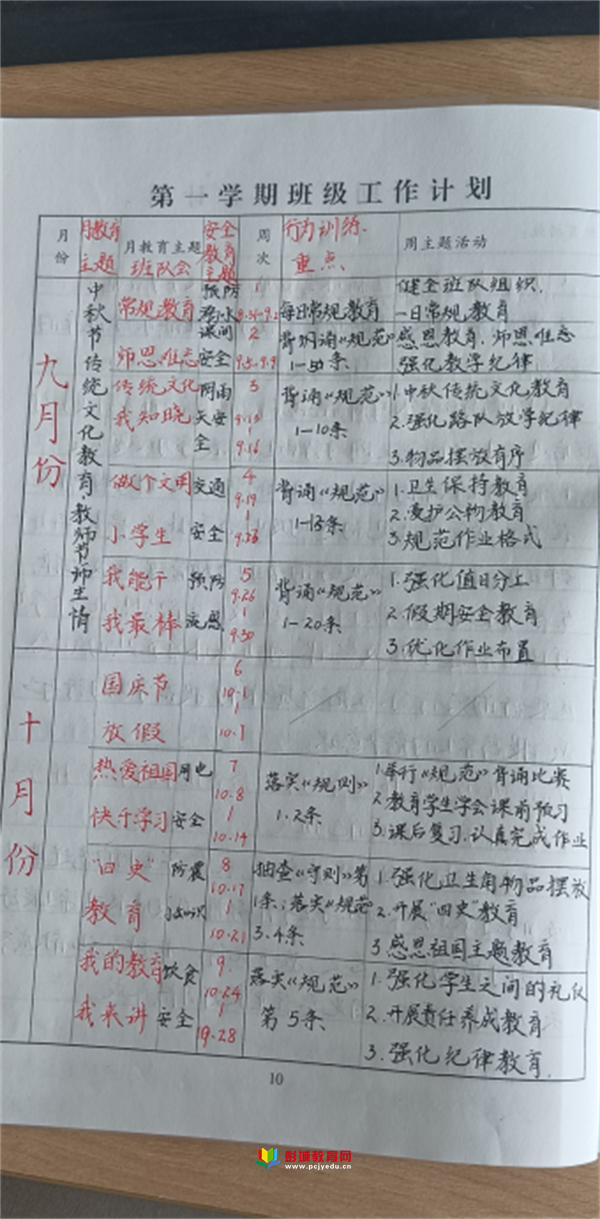 第一学期班级工作计划
月份 月教育主题 月教育主题班队会 安全教育主题 周次 行为训练重点 周主题活动
九月份
中秋节传统文化教育·教师节师生情
常规教育 预防溺水 1 每日常规教育 健全班队组织.
一日常规教育
师恩难忘 课间安全 2 9.5-9.9 背诵《规范》1-50条 感恩教育.师恩难忘
强化教学纪律
传统文化我知晓 阴雨天安全 3 9.13 9.16 背诵《规范》1-10条 1.中秋传统文化教育
2.强化路队放学纪律
3.物品摆放有序
做个文明小学生 交通安全 4 9.19 背诵《规范》1-15条 1.卫生保持教育
2.爱护公物教育
3.规范作业格式
我能干我最棒 预防流感 5 9.26 9.30 背诵《规范》1-20条 1.强化值日分工
2.假期安全教育
3.优化作业布置
十月份
国庆节放假 6 10.1 10.7
热爱祖国快乐学习 用电安全 7 10.8 10.14 落实《规则》1.2条 1.举行《规范》背诵比赛
2.教育学生学会课前预习
3.课后复习.认真完成作业
"四史"教育 防震知识 8 10.17 10.21 抽查《守则》第1条;落实《规范》3.4条 1.强化卫生角物品摆放
2.开展"四史"教育
3.感恩祖国主题教育
我的教育我来讲 饮食安全 9. 10.24 19.28 落实《规范》第5条 1.强化学生之间的礼仪
2.开展责任养成教育
3.强化纪律教育.
10
彭城教育网
www.pcjyedu.cn